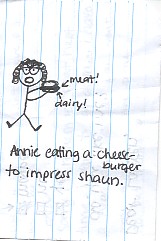 meat!
dairy!
Annie eating a cheese-
burger
to impress shaun.